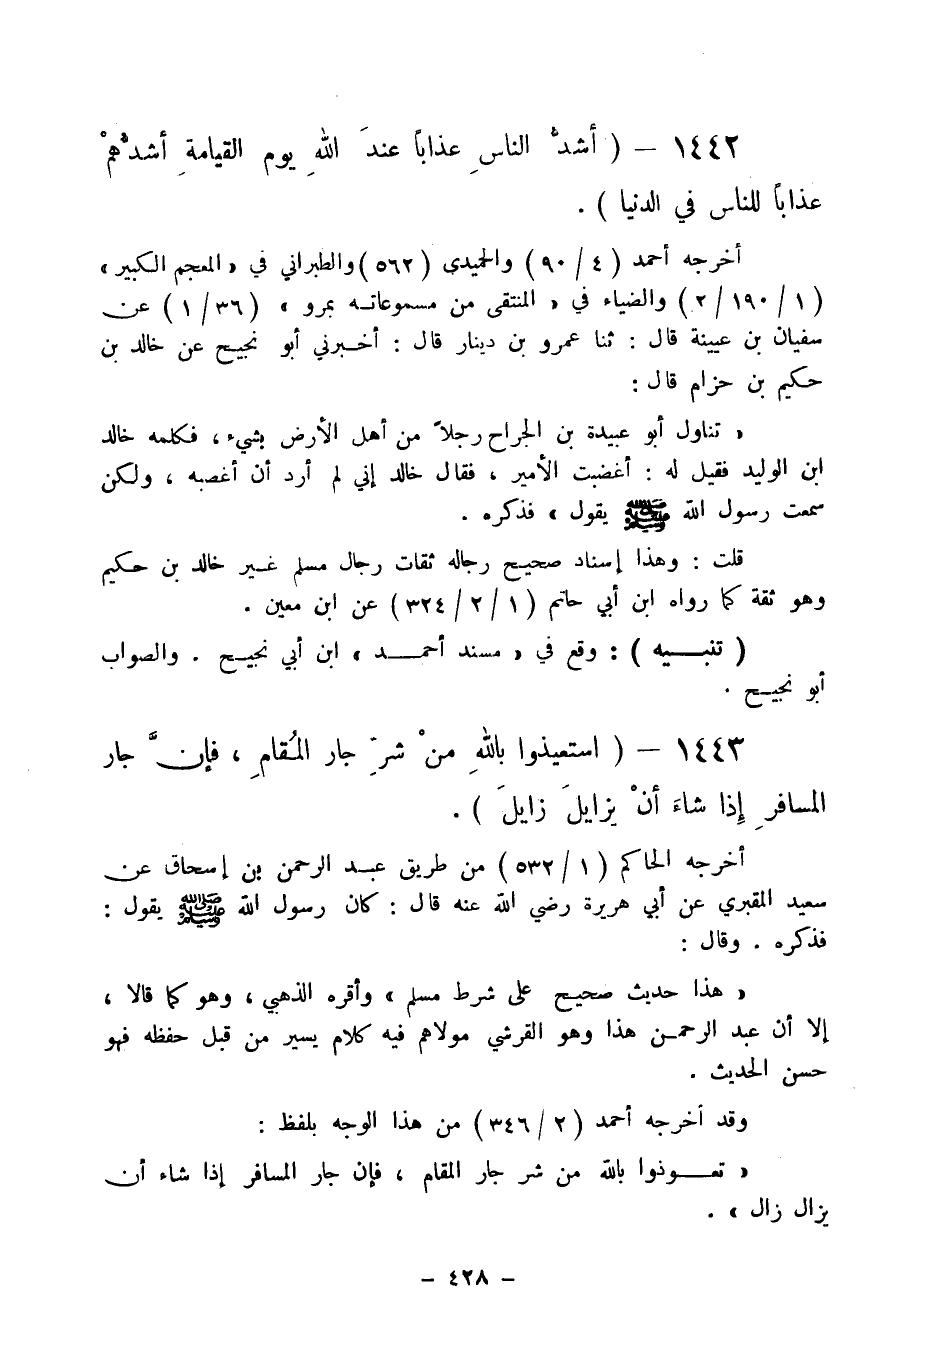 ١٤٤٢ – ( أشدُّ الناسِ عذاباً عندَ اللهِ يوم القيامةِ أشدُّهمْ
عذاباً للناس في الدنيا ) .
أخرجه أحمد ( ٤ / ٩٠ ) والحميدى ( ٥٦٢ ) والطبراني في « المعجم الكبير »
( ١ / ١٩٠ / ٢ ) والضياء في « المنتقى من مسموعاته بمرو » ( ٣٦ / ١ ) عن
سفيان بن عيينة قال : ثنا عمرو بن دينار قال : أخبرني أبو نجيح عن خالد بن
حكيم بن حزام قال :
« تناول أبو عبيدة بن الجراح رجلاً من أهل الأرض بشيء ، فكلمه خالد
ابن الوليد فقيل له : أغضبت الأمير ، فقال خالد إني لم أرد أن أغصبه ، ولكن
سمعت رسول الله ﷺ يقول » فذكره .
قلت : وهذا إسناد صحيح رجاله ثقات رجال مسلم غير خالد بن حكيم
وهو ثقة كما رواه ابن أبي حاتم ( ١ / ٢ / ٣٢٤ ) عن ابن معين .
( تنبيه ) : وقع في « مسند أحمد » ابن أبي نجيح . والصواب
أبو نجيح .
١٤٤٣ – ( استعيذوا باللهِ منْ شرِّ جار المُقامِ ، فإنَّ جار
المسافرِ إِذا شاءَ أنْ يزايلَ زايلَ ) .
أخرجه الحاكم ( ١ / ٥٣٢ ) من طريق عبد الرحمن بن إسحاق عن
سعيد المقبري عن أبي هريرة رضي الله عنه قال : كان رسول الله ﷺ يقول :
فذكره . وقال :
« هذا حديث صحيح على شرط مسلم » وأقره الذهبي ، وهو كما قالا ،
إلا أن عبد الرحمن هذا وهو القرشي مولاهم فيه كلام يسير من قبل حفظه فهو
حسن الحديث .
وقد أخرجه أحمد ( ٢ / ٣٤٦ ) من هذا الوجه بلفظ :
« تعوذوا بالله من شر جار المقام ، فإن جار المسافر إذا شاء أن
يزال زال » .
– ٤٢٨ –